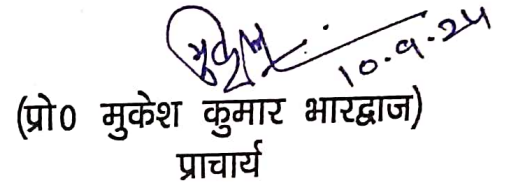 मुकेश
10.9.24
(प्रो0 मुकेश कुमार भारद्वाज)
प्राचार्य